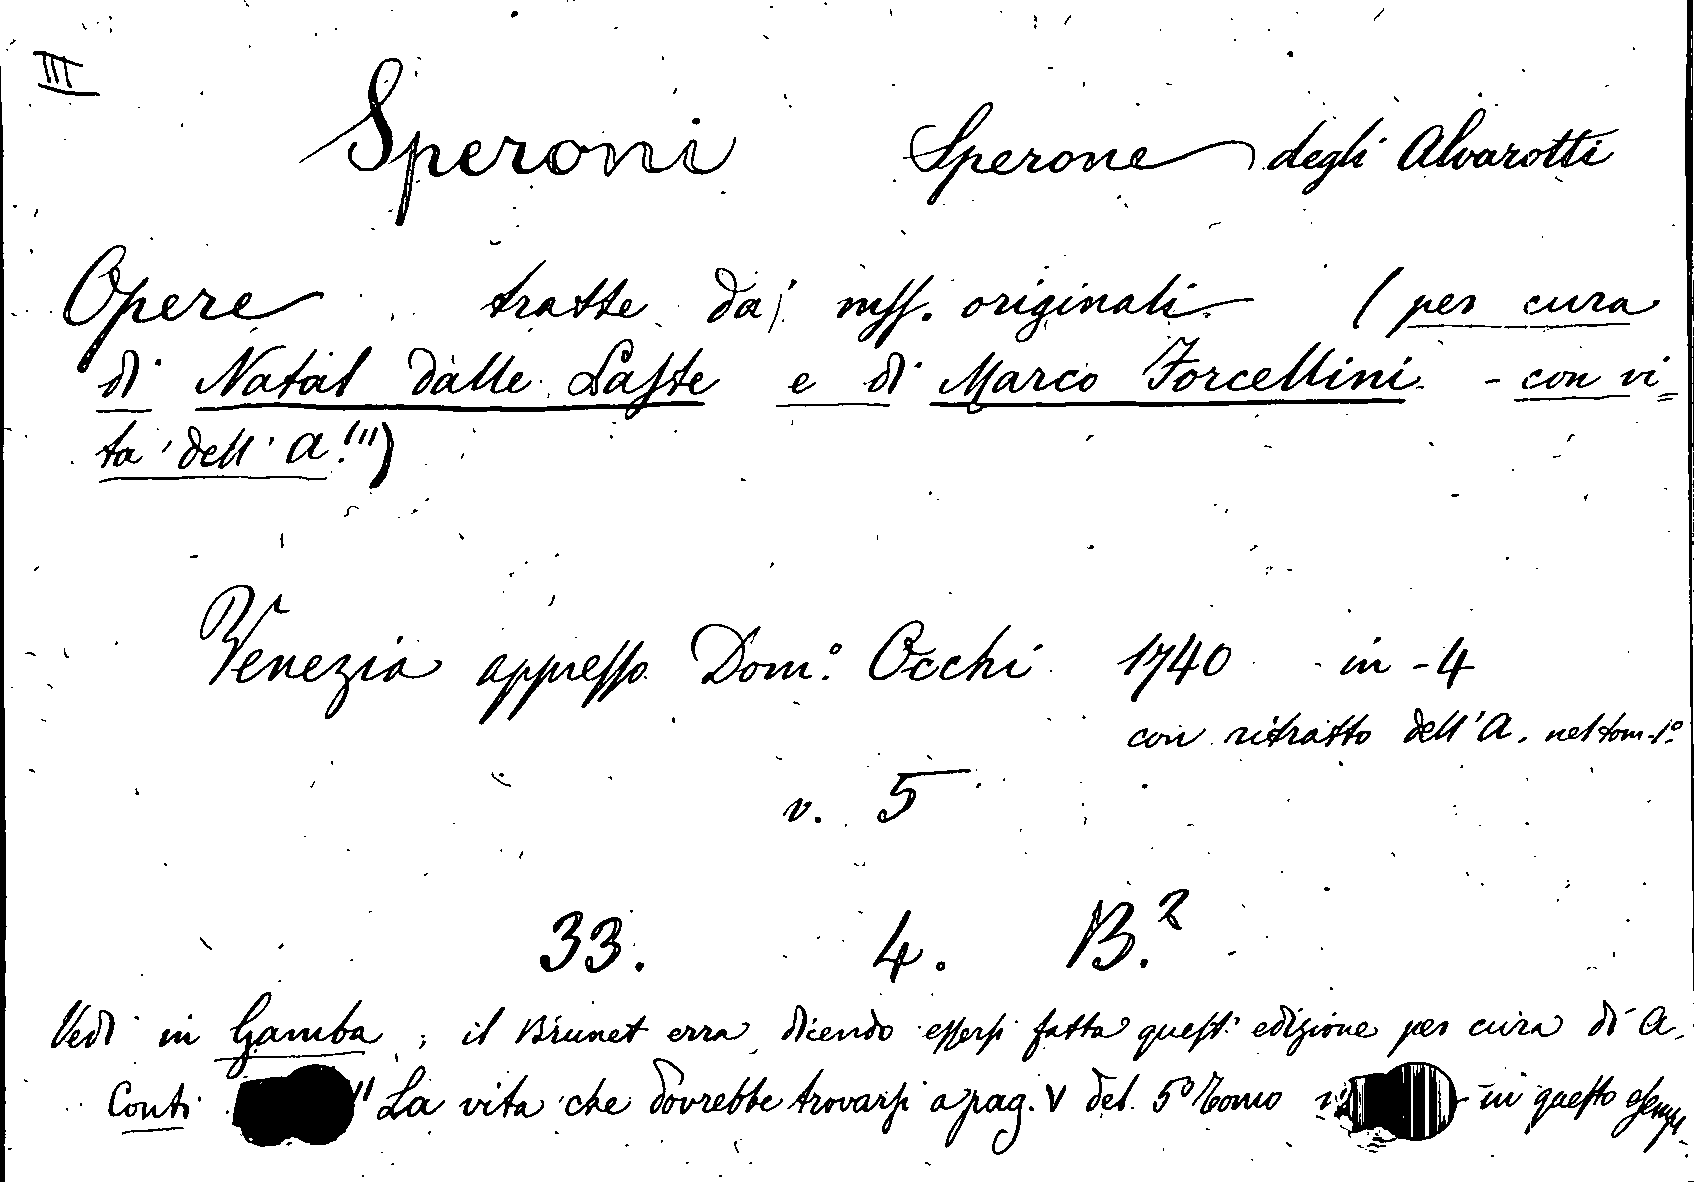 III
Speroni Sperone degli Alvarotti
Opere tratte da' mss. originali (per cura
di Natal dalle Laste e di Marco Forcellini - con vi=
ta dell' A.''')
Venezia appresso Dom.º Occhi 1740 in-4
con ritratto dell'A. nel tom. 1º
v. 5
33. 4. B.²
Vedi in Gamba; il Brunet erra dicendo essersi fatta quest' edizione per cura di A.
Conti '' La vita che dovrebbe trovarsi a pag. V del 5º Tomo in questo